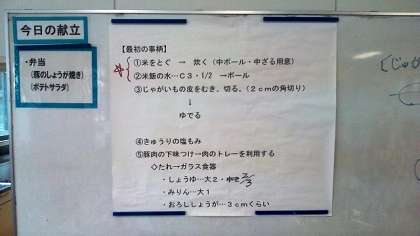 今日の献立
・弁当
(豚のしょうが焼き)
(ポテトサラダ)
【最初の事柄】
①米をとぐ → 炊く(中ボール・中ざる用意)
②米飯の水…C3・1/2 →ボール
③じゃがいもの皮をむき、切る、(2cmの角切り)
↓
ゆでる
④きゅうりの塩もみ
⑤豚肉の下味つけ→肉のトレーを利用する
◇たれ→ガラス食器
・しょうゆ…大2・2/3
・みりん…大1
・おろししょうが…3cmくらい
じゃが